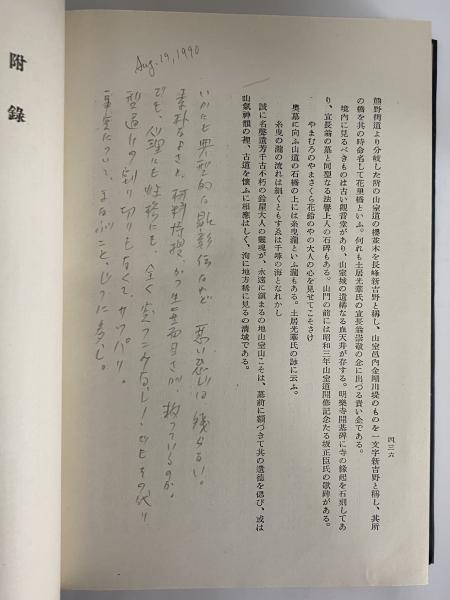 四三六
熊野街道より分岐した所の山室道の櫻並木を長峰新吉野と稱し、山室邑內金剛川堤のものを一文字新吉野と稱し、其所
の橋を其の時命名して花里橋といふ。何れも土居光華氏の宜長翁崇敬の念に出づる貴い企である。
境內に見るべきものは古い觀音堂があり、山室城の遺構なる血天井が存する。明樂寺開基碑に寺の緣起を石刻してあ
り、宜長翁の墓と同型なる法譽上人の石碑もある。山門の前には昭和三年山室道開修記念たる坂正臣氏の歌碑がある。
やまむろのやまさくら花鈴のやの大人の心を見せてこそさけ
奧墓に向ふ山道の石橋の上には糸曳瀧といふ瀧もある。土居光華氏の詠に云ふ。
糸曳の瀧の流れは細くともすゑは千尋の海となれかし
誠に名聲遺芳千古不朽の鈴屋大人の靈魂が、永遠に鎭まるの地山室山こそは、墓前に額づきて其の遺德を偲び、或は
山氣神韻の裡、古道を懷ふに相應はしく、洵に地方稀に見るの淸域である。
Aug. 29, 1990
いかにも典型的な
悪い感じは残らない。
素朴なよさと、材料
が、救っているのか。
でも、心理にも性格にも、全く
その代り
型通りの割り切りもなくて、サッパリ。
事実について、まなぶこと、じつに多し。
附錄